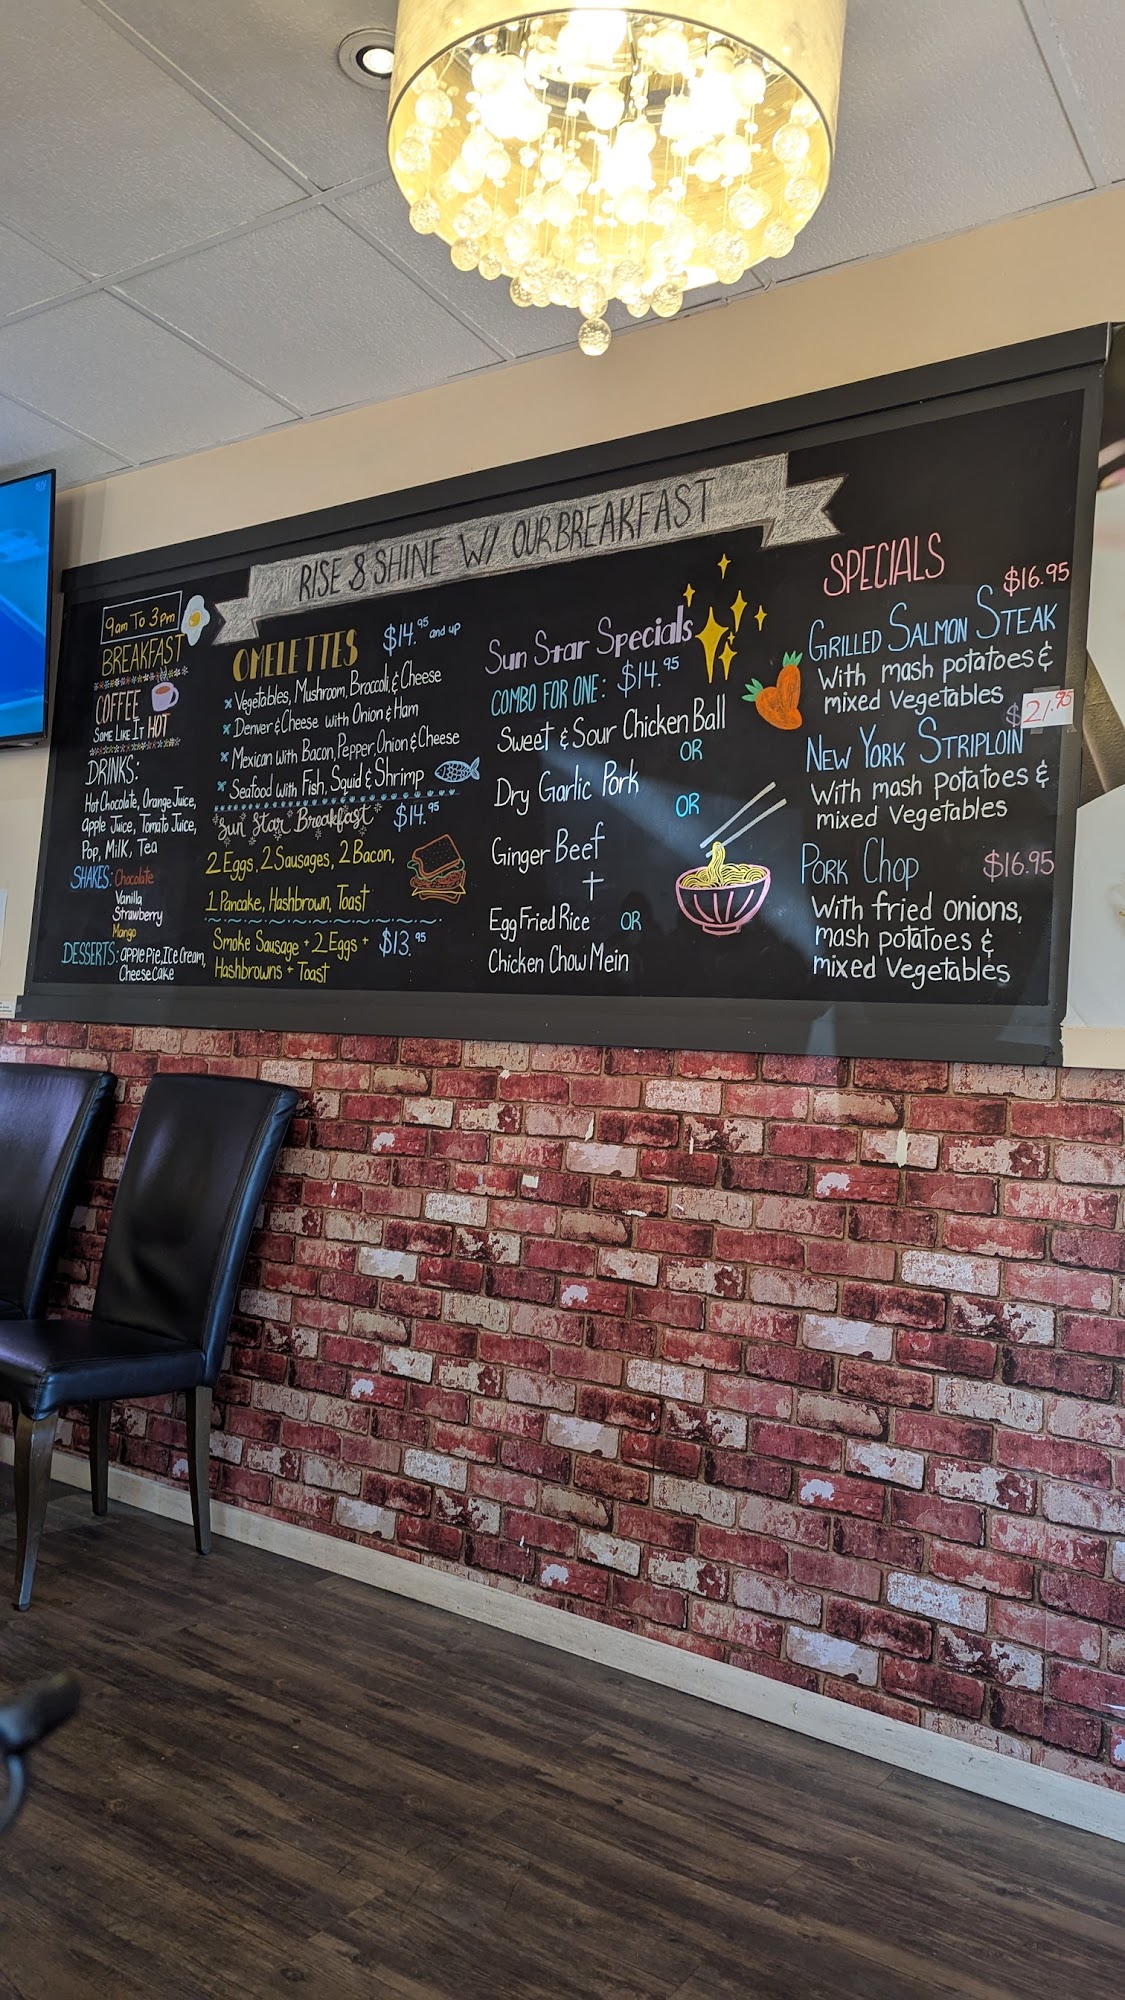 RISE & SHINE W/ OUR BREAKFAST
9am To 3pm
BREAKFAST
COFFEE
SOME LIKE IT HOT
DRINKS:
Hot Chocolate, Orange Juice,
Apple Juice, Tomato Juice,
Pop, Milk, Tea
SHAKES: Chocolate
Vanilla
Strawberry
Mango
DESSERTS: Apple Pie, Ice Cream,
Cheese Cake
OMELETTES $14.95 and up
Vegetables, Mushroom, Broccoli, & Cheese
Denver & Cheese with Onion & Ham
Mexican with Bacon, Pepper, Onion & Cheese
Seafood with Fish, Squid & Shrimp
"Sun Star Breakfast" $14.95
2 Eggs, 2 Sausages, 2 Bacon,
1 Pancake, Hashbrown, Toast
Smoke Sausage + 2 Eggs + $13.95
Hashbrowns + Toast
Sun Star Specials
COMBO FOR ONE: $14.95
Sweet & Sour Chicken Ball
OR
Dry Garlic Pork
OR
Ginger Beef
+
Egg Fried Rice OR
Chicken Chow Mein
SPECIALS
$16.95
GRILLED SALMON STEAK
With mash potatoes &
mixed Vegetables
$21.95
NEW YORK STRIPLOIN
With mash Potatoes &
mixed Vegetables
PORK CHOP $16.95
With fried onions,
mash potatoes &
mixed Vegetables